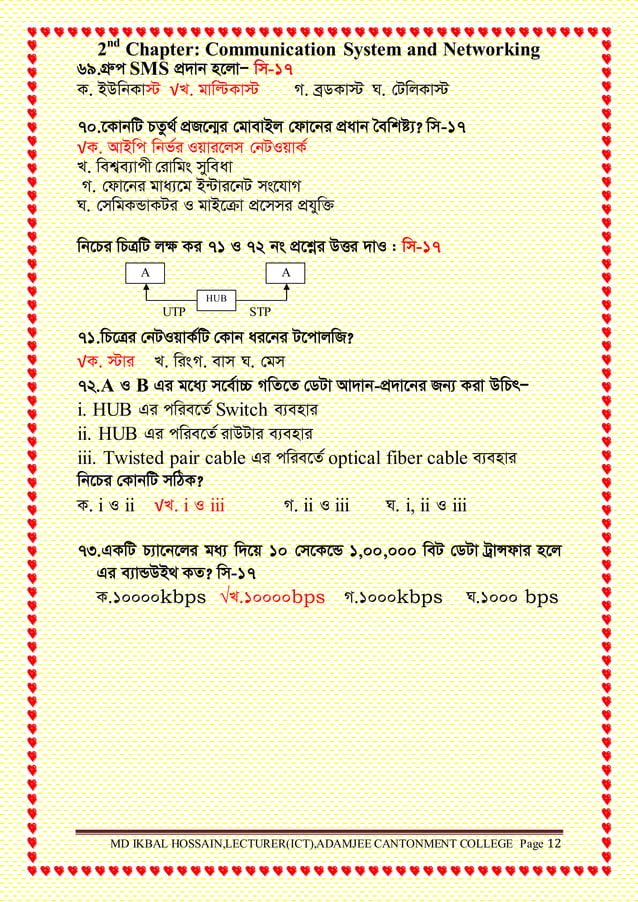 2nd Chapter: Communication System and Networking
৬৯.গ্রুপ SMS প্রদান হলো– সি-১৭
ক. ইউনিকাস্ট √খ. মাল্টিকাস্ট গ. ব্রডকাস্ট ঘ. টেলিকাস্ট
৭০.কোনটি চতুর্থ প্রজন্মের মোবাইল ফোনের প্রধান বৈশিষ্ট্য? সি-১৭
√ক. আইপি নির্ভর ওয়ারলেস নেটওয়ার্ক
খ. বিশ্বব্যাপী রোমিং সুবিধা
গ. ফোনের মাধ্যমে ইন্টারনেট সংযোগ
ঘ. সেমিকন্ডাকটর ও মাইক্রো প্রসেসর প্রযুক্তি
নিচের চিত্রটি লক্ষ কর ৭১ ও ৭২ নং প্রশ্নের উত্তর দাও : সি-১৭
A A
HUB
UTP STP
৭১.চিত্রের নেটওয়ার্কটি কোন ধরনের টপোলজি?
√ক. স্টার খ. রিংগ. বাস ঘ. মেস
৭২.A ও B এর মধ্যে সর্বোচ্চ গতিতে ডেটা আদান-প্রদানের জন্য করা উচিৎ–
i. HUB এর পরিবর্তে Switch ব্যবহার
ii. HUB এর পরিবর্তে রাউটার ব্যবহার
iii. Twisted pair cable এর পরিবর্তে optical fiber cable ব্যবহার
নিচের কোনটি সঠিক?
ক. i ও ii √খ. i ও iii গ. ii ও iii ঘ. i, ii ও iii
৭৩.একটি চ্যানেলের মধ্য দিয়ে ১০ সেকেন্ডে ১,০০,০০০ বিট ডেটা ট্রান্সফার হলে
এর ব্যান্ডউইথ কত? সি-১৭
ক.১০০০০kbps √খ.১০০০০bps গ.১০০০kbps ঘ.১০০০ bps
MD IKBAL HOSSAIN,LECTURER(ICT),ADAMJEE CANTONMENT COLLEGE Page 12